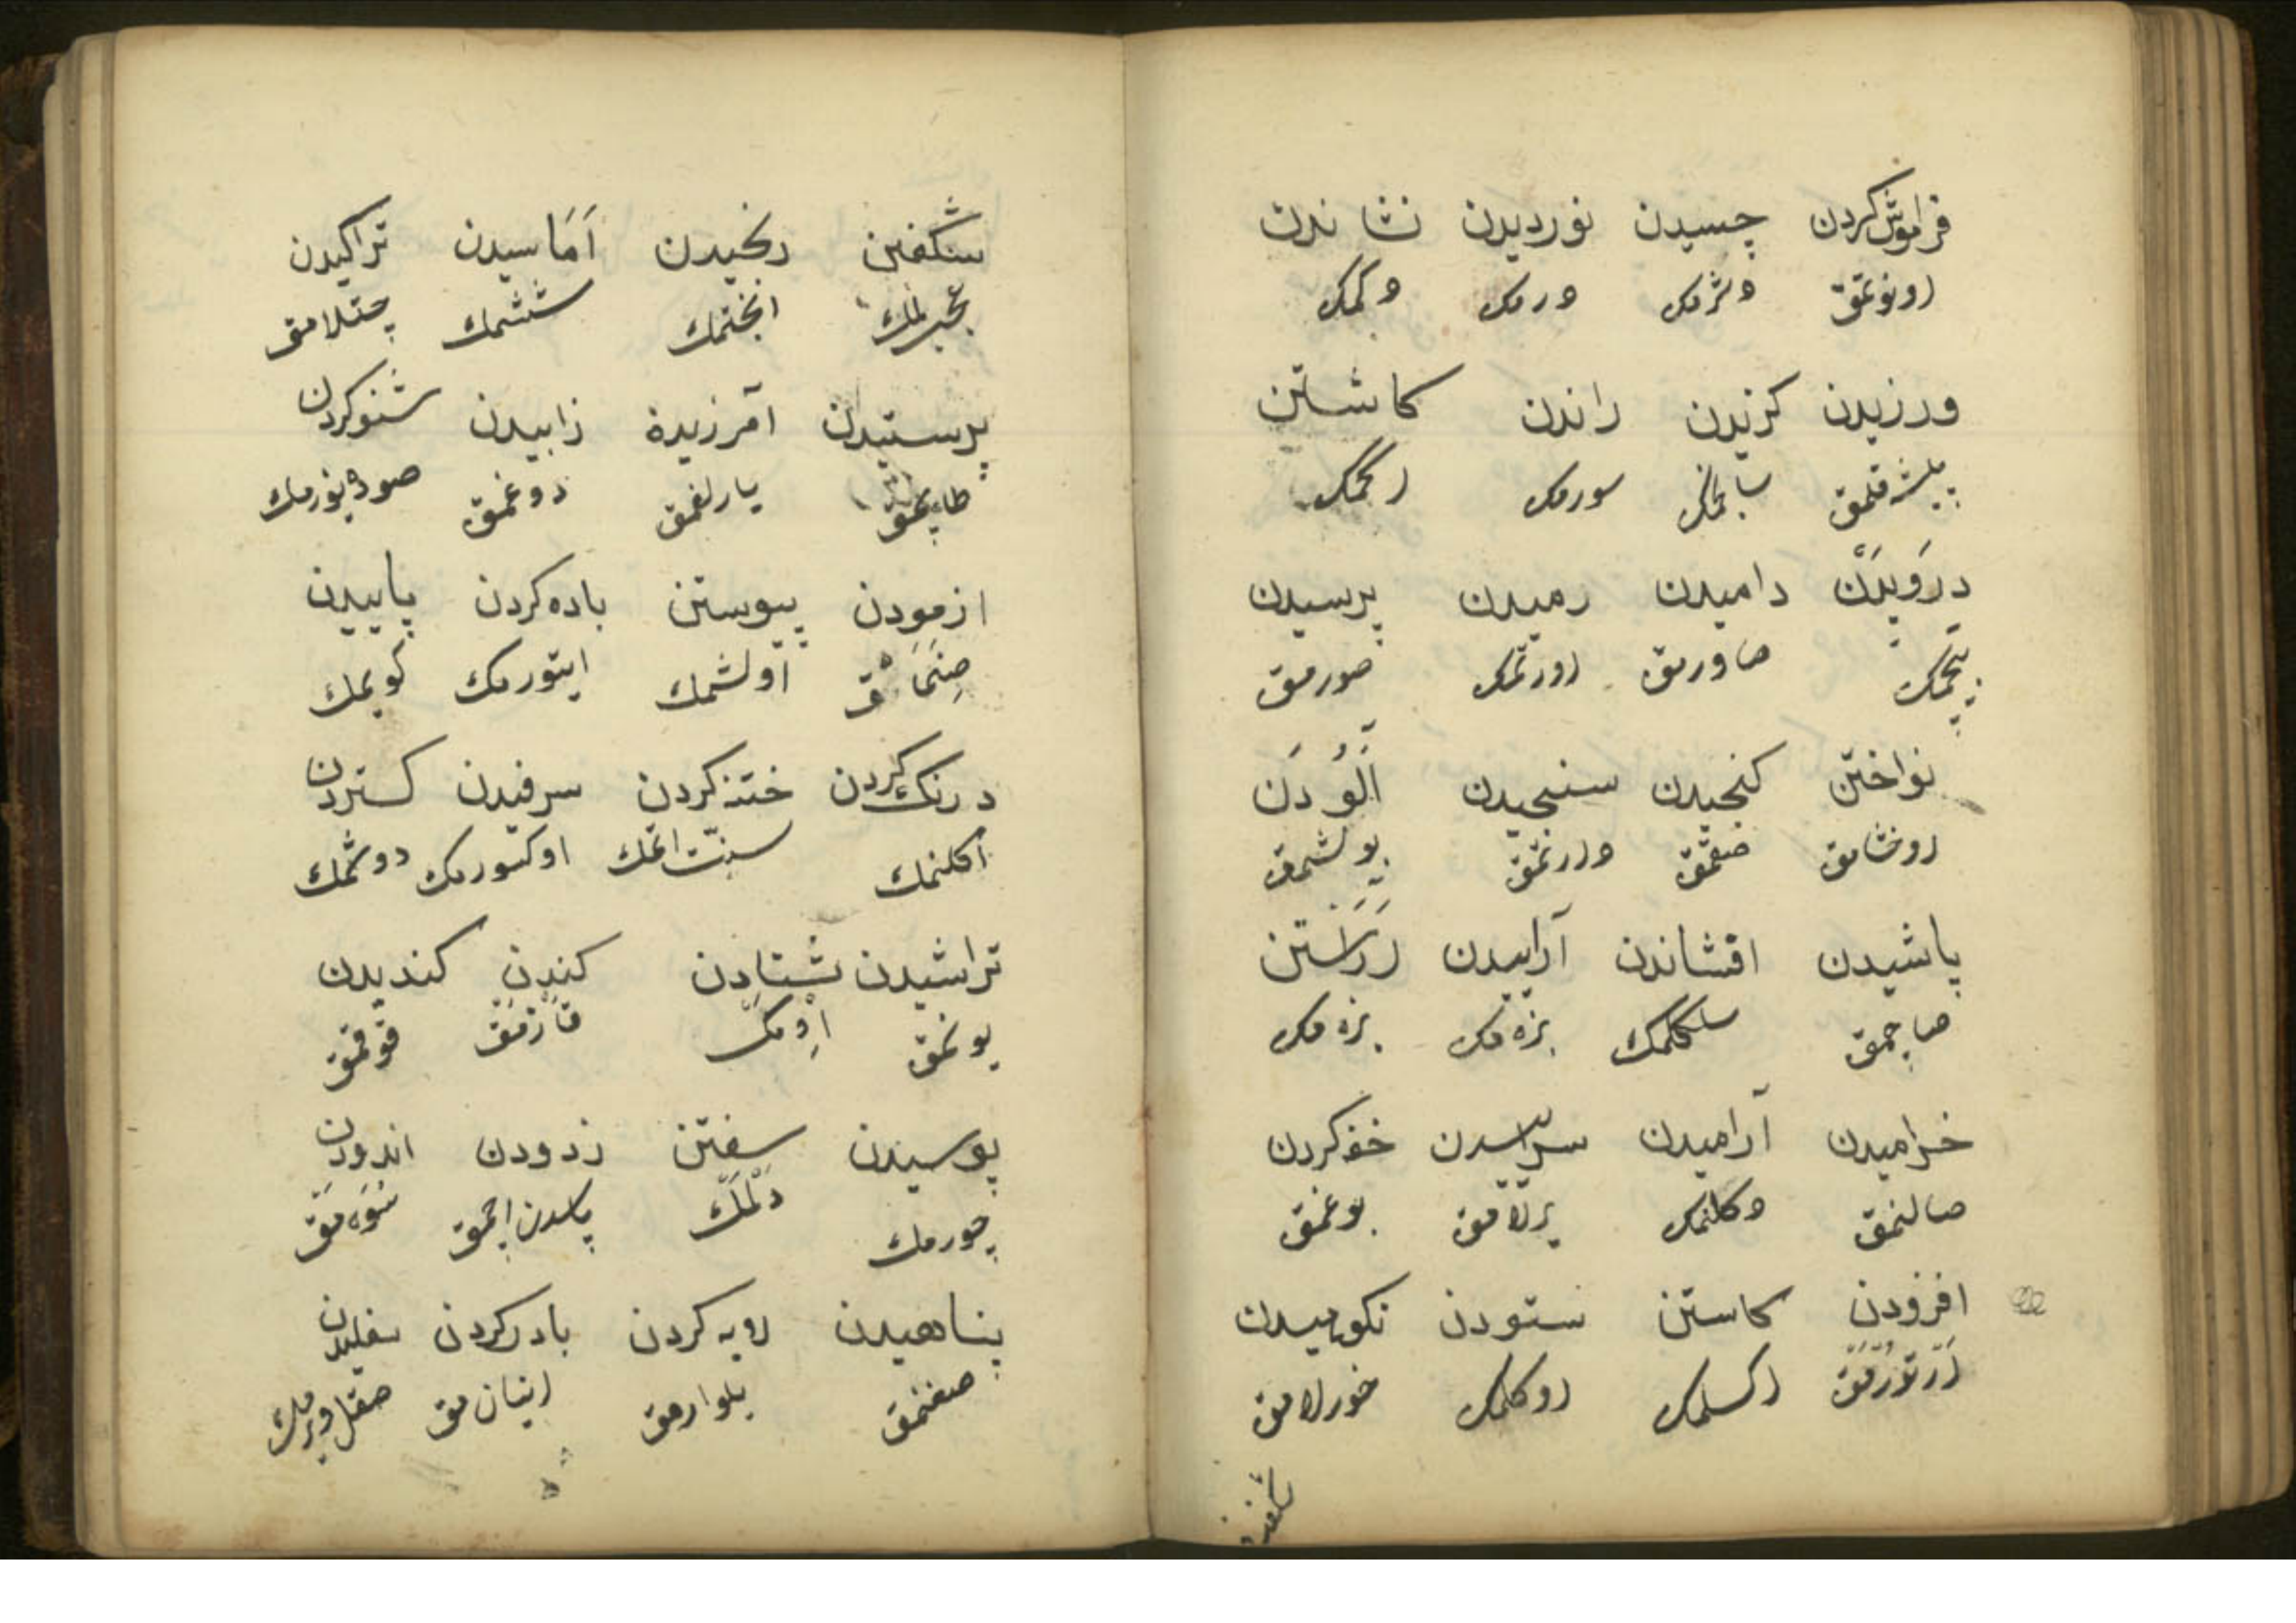 فراموش کردن چسپیدن نوردیدن نشاندن
اونوتمق دترمك دورمك دکمك
ورزیدن کزیدن راندن کاشتن
پیشه قلمق سورمك اکمك
درویدن دامیدن رمیدن پرسیدن
بچمك صاورمق اورکمك صورمق
نواختن کنجیدن سنجیدن آلودن
اوخشامق صغمق دارتمق بولشمق
پاشیدن افشاندن آراییدن آراستن
صاچمق سلکمك بزه مك بزه مك
خرامیدن آرامیدن سراییدن خفه کردن
صالنمق دکلنمك یرلامق بوغمق
افزودن کاستن ستودن نکوهیدن
آرتورمق اکسلمك اوکمك خورلامق
شکفتن
شکفتن رنجیدن آماسیدن تراکیدن
عجبلمك انجنمك ششمك چتلامق
پرستیدن آمرزیدن زابیدن شنو کردن
طاپمق یارلغمق دوغمق صوده یوزمك
ازمودن پیوستن باده کردن پاییدن
صنمامق اولشمك ایتورمك کویمك
درنك کردن ختنه کردن سرفیدن کستردن
اکلنمك سنت اتمك اوکسورمك دوشمك
تراشیدن شتادن کندن کندیدن
یونمق اومك قازمق قوقمق
پوسیدن سفتن زدودن اندودن
چورمك دلمك پاسدن اچمق صوه مق
پناهیدن رویه کردن باور کردن
صغنمق یلوارمق اینانمق صقل ویرمك